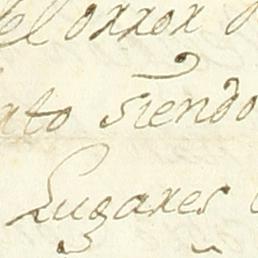 el orror
ato siendo
Lugares